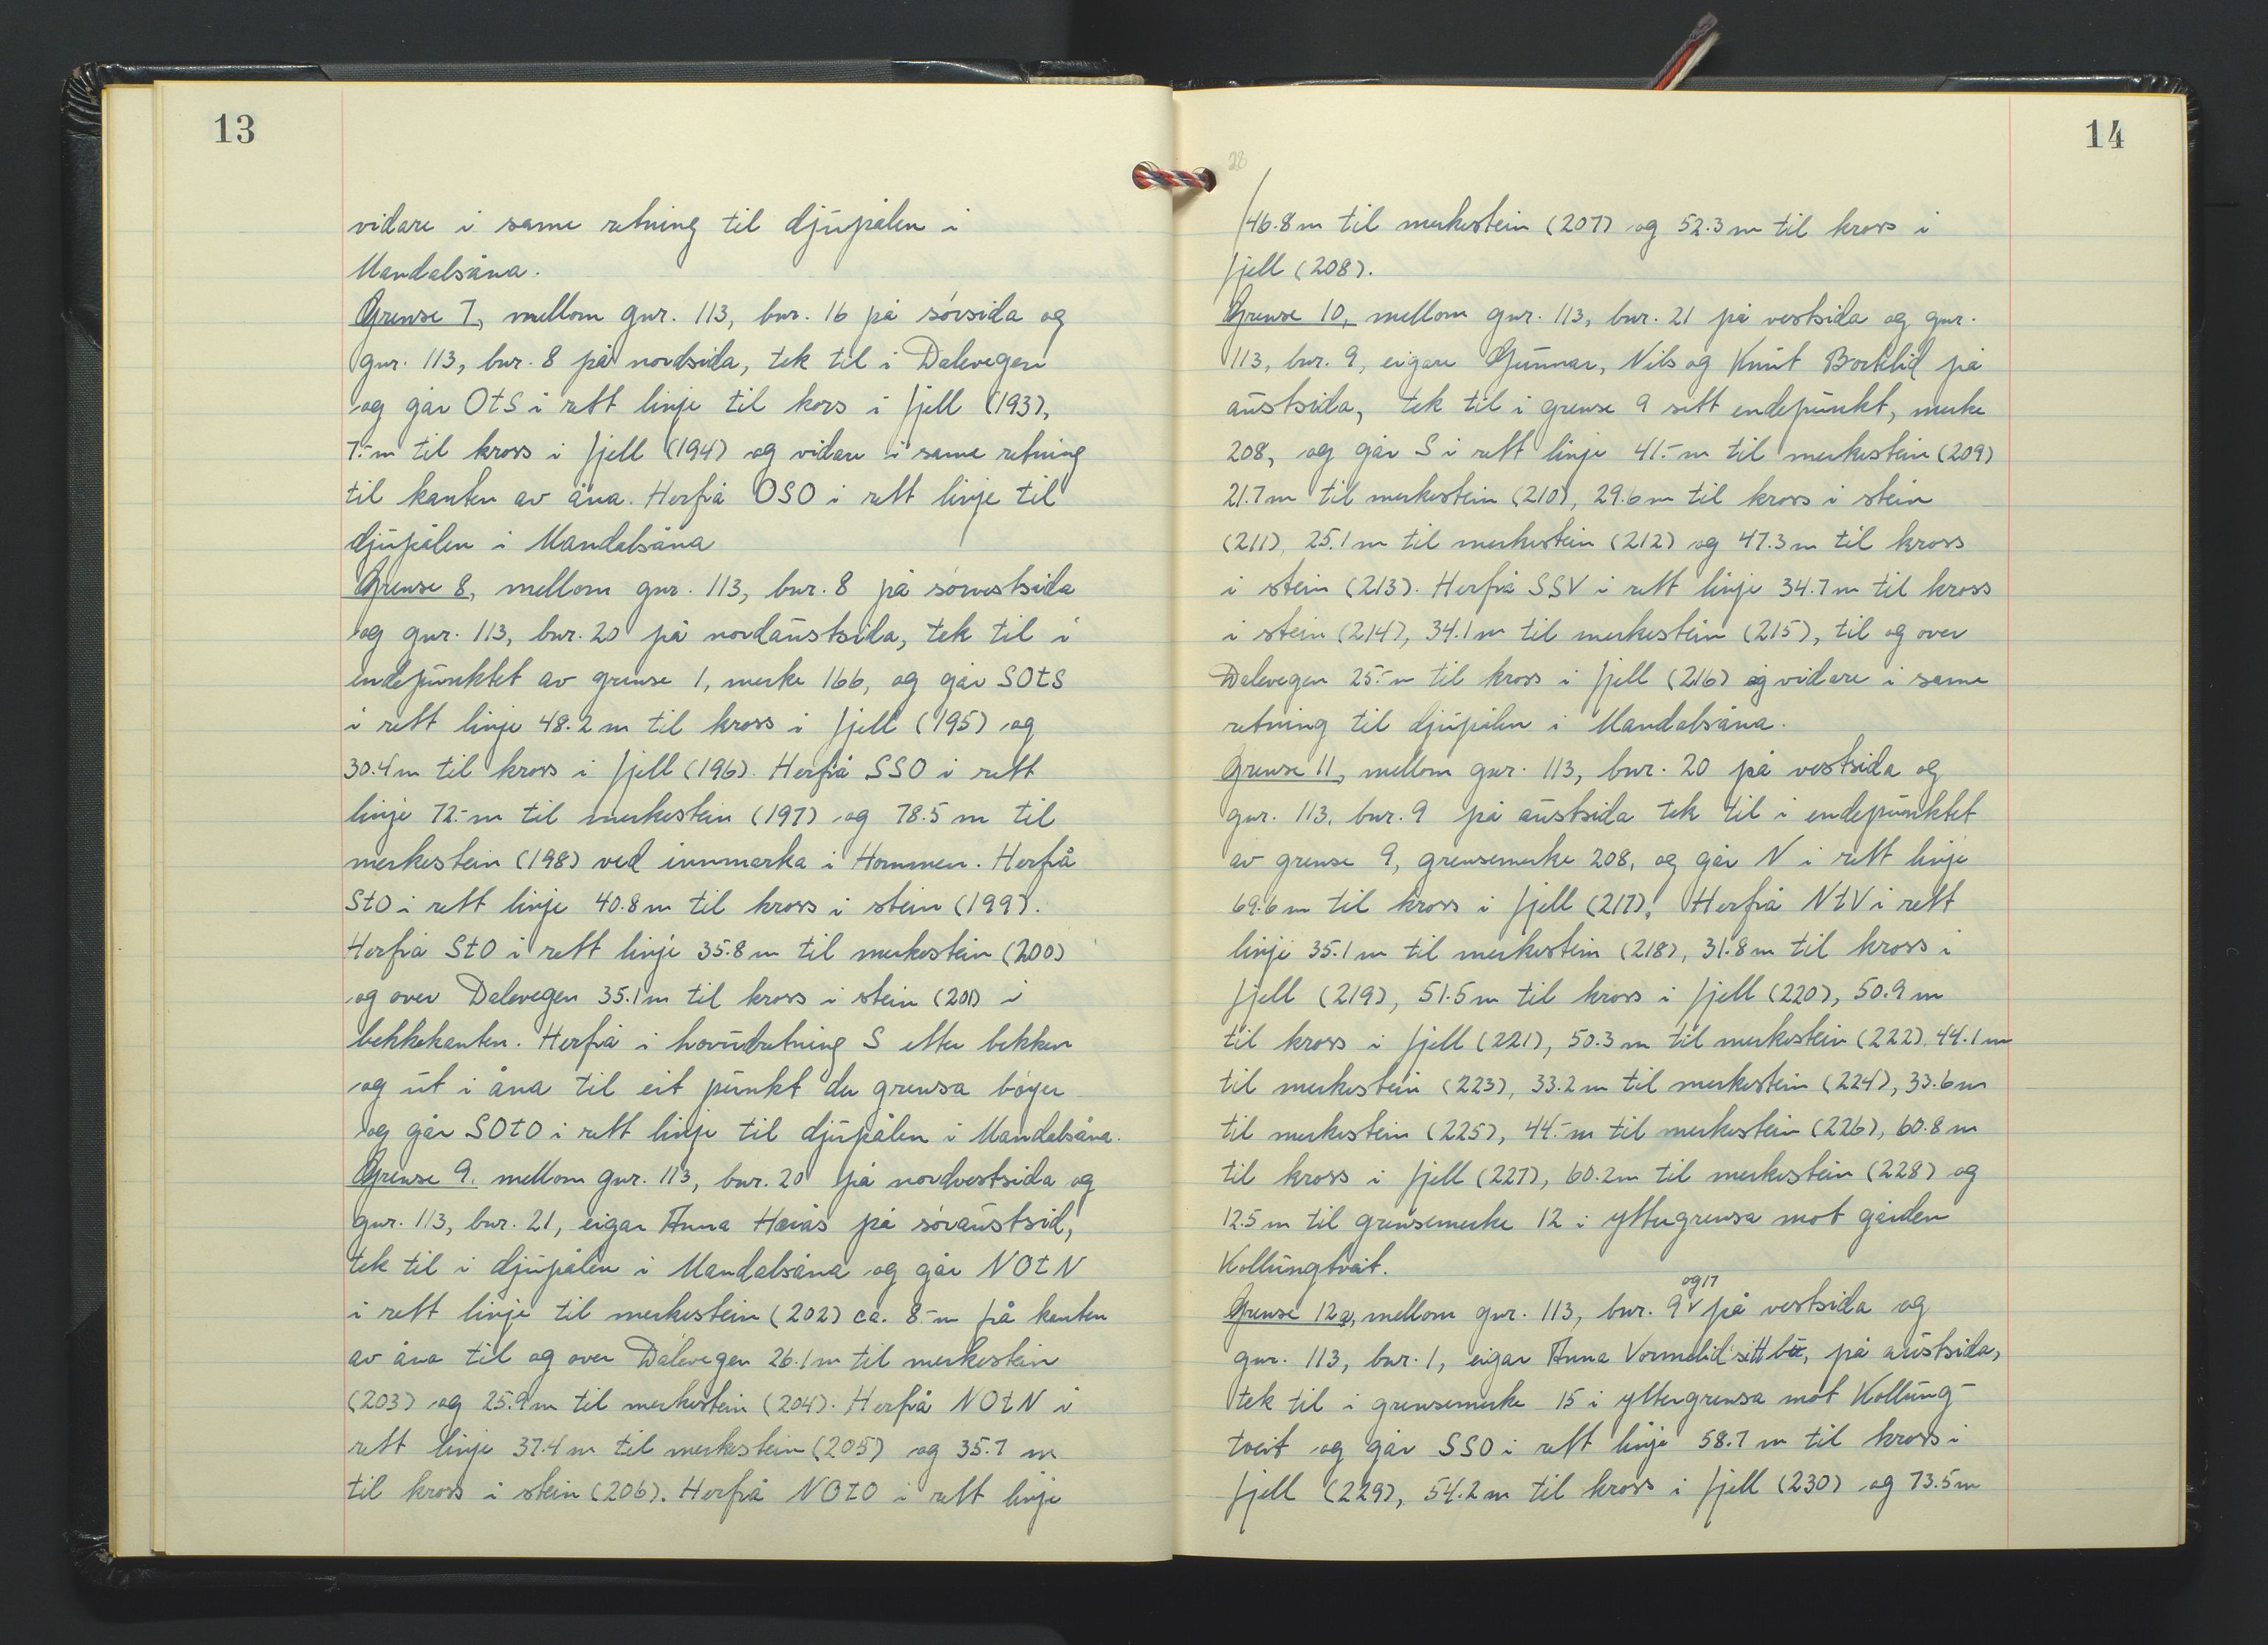 13
vidare i same retning til djupålen i
Mandalsåna.
Grense 7, mellom gnr. 113, bnr. 16 på sørsida og
gnr. 113, bnr. 8 på nordsida, tek til i Dalevegen
og går OtS i rett linje til kors i fjell (193),
7.- m til kross i fjell (194) og vidare i same retning
til kanten av åna. Herfrå OSO i rett linje til
djupålen i Mandalsåna
Grense 8, mellom gnr. 113, bnr. 8 på sørvestsida
og gnr. 113, bnr. 20 på nordaustsida, tek til i
endepunktet av grense 1, merke 166, og går SOtS
i rett linje 48.2 m til kross i fjell (195) og
30.4 m til kross i fjell (196). Herfrå SSO i rett
linje 72.- m til merkestein (197) og 78.5 m til
merkestein (198) ved innmarka i Hommen. Herfrå
StO i rett linje 40.8 m til kross i stein (199).
Herfrå StO i rett linje 35.8 m til merkestein (200)
og over Dalevegen 35.1 m til kross i stein (201) i
bekkekanten. Herfrå i hovudretning S etter bekken
og ut i åna til eit punkt der grensa bøyer
og går SOtO i rett linje til djupålen i Mandalsåna.
Grense 9. mellom gnr. 113, bnr. 20 på nordvestsida og
gnr. 113, bnr. 21, eigar Anna Haaås på søraustsid,
tek til i djupålen i Mandalsåna og går NOtN
i rett linje til merkestein (202) ca. 8.- m frå kanten
av åna til og over Dalevegen 26.1 m til merkestein
(203) og 25.9 m til merkestein (204). Herfrå NOtN i
rett linje 37.4 m til merkestein (205) og 35.7 m
til kross i stein (206). Herfrå NOtO i rett linje
14
28
46.8 m til merkestein (207) og 52.3 m til kross i
fjell (208).
Grense 10, mellom gnr. 113, bnr. 21 på vestsida og gnr.
113, bnr. 9, eigare Gunnar, Nils og Knut Borklid på
austsida, tek til i grense 9 sitt endepunkt, merke
208, og går S i rett linje 41.- m til merkestein (209)
21.7 m til merkestein (210), 29.6 m til kross i stein
(211), 25.1 m til merkestein (212) og 47.3 m til kross
i stein (213). Herfrå SSV i rett linje 34.7 m til kross
i stein (214), 34.1 m til merkestein (215), til og over
Dalevegen 25.- m til kross i fjell (216) og vidare i same
retning til djupålen i Mandalsåna.
Grense 11, mellom gnr. 113, bnr. 20 på vestsida og
gnr. 113, bnr. 9 på austsida tek til i endepunktet
av grense 9, grensemerke 208, og går N i rett linje
69.6 m til kross i fjell (217), Herfrå NtV i rett
linje 35.1 m til merkestein (218), 31.8 m til kross i
fjell (219), 51.5 m til kross i fjell (220), 50.9 m
til kross i fjell (221), 50.3 m til merkestein (222), 44.1 m
til merkestein (223), 33.2 m til merkestein (224), 33.6 m
til merkestein (225), 44.- m til merkestein (226), 60.8 m
til kross i fjell (227), 60.2 m til merkestein (228) og
12.5 m til grensemerke 12 i yttergrensa mot garden
Kollungtveit.
og 17
Grense 12a, mellom gnr. 113, bnr. 9 på vestsida og
gnr. 113, bnr. 1, eigar Anna Vormelid sitt bu, på austsida,
tek til i grensemerke 15 i yttergrensa mot Kollung-
tveit og går SSO i rett linje 58.7 m til kross i
fjell (229), 54.2 m til kross i fjell (230) og 73.5 m